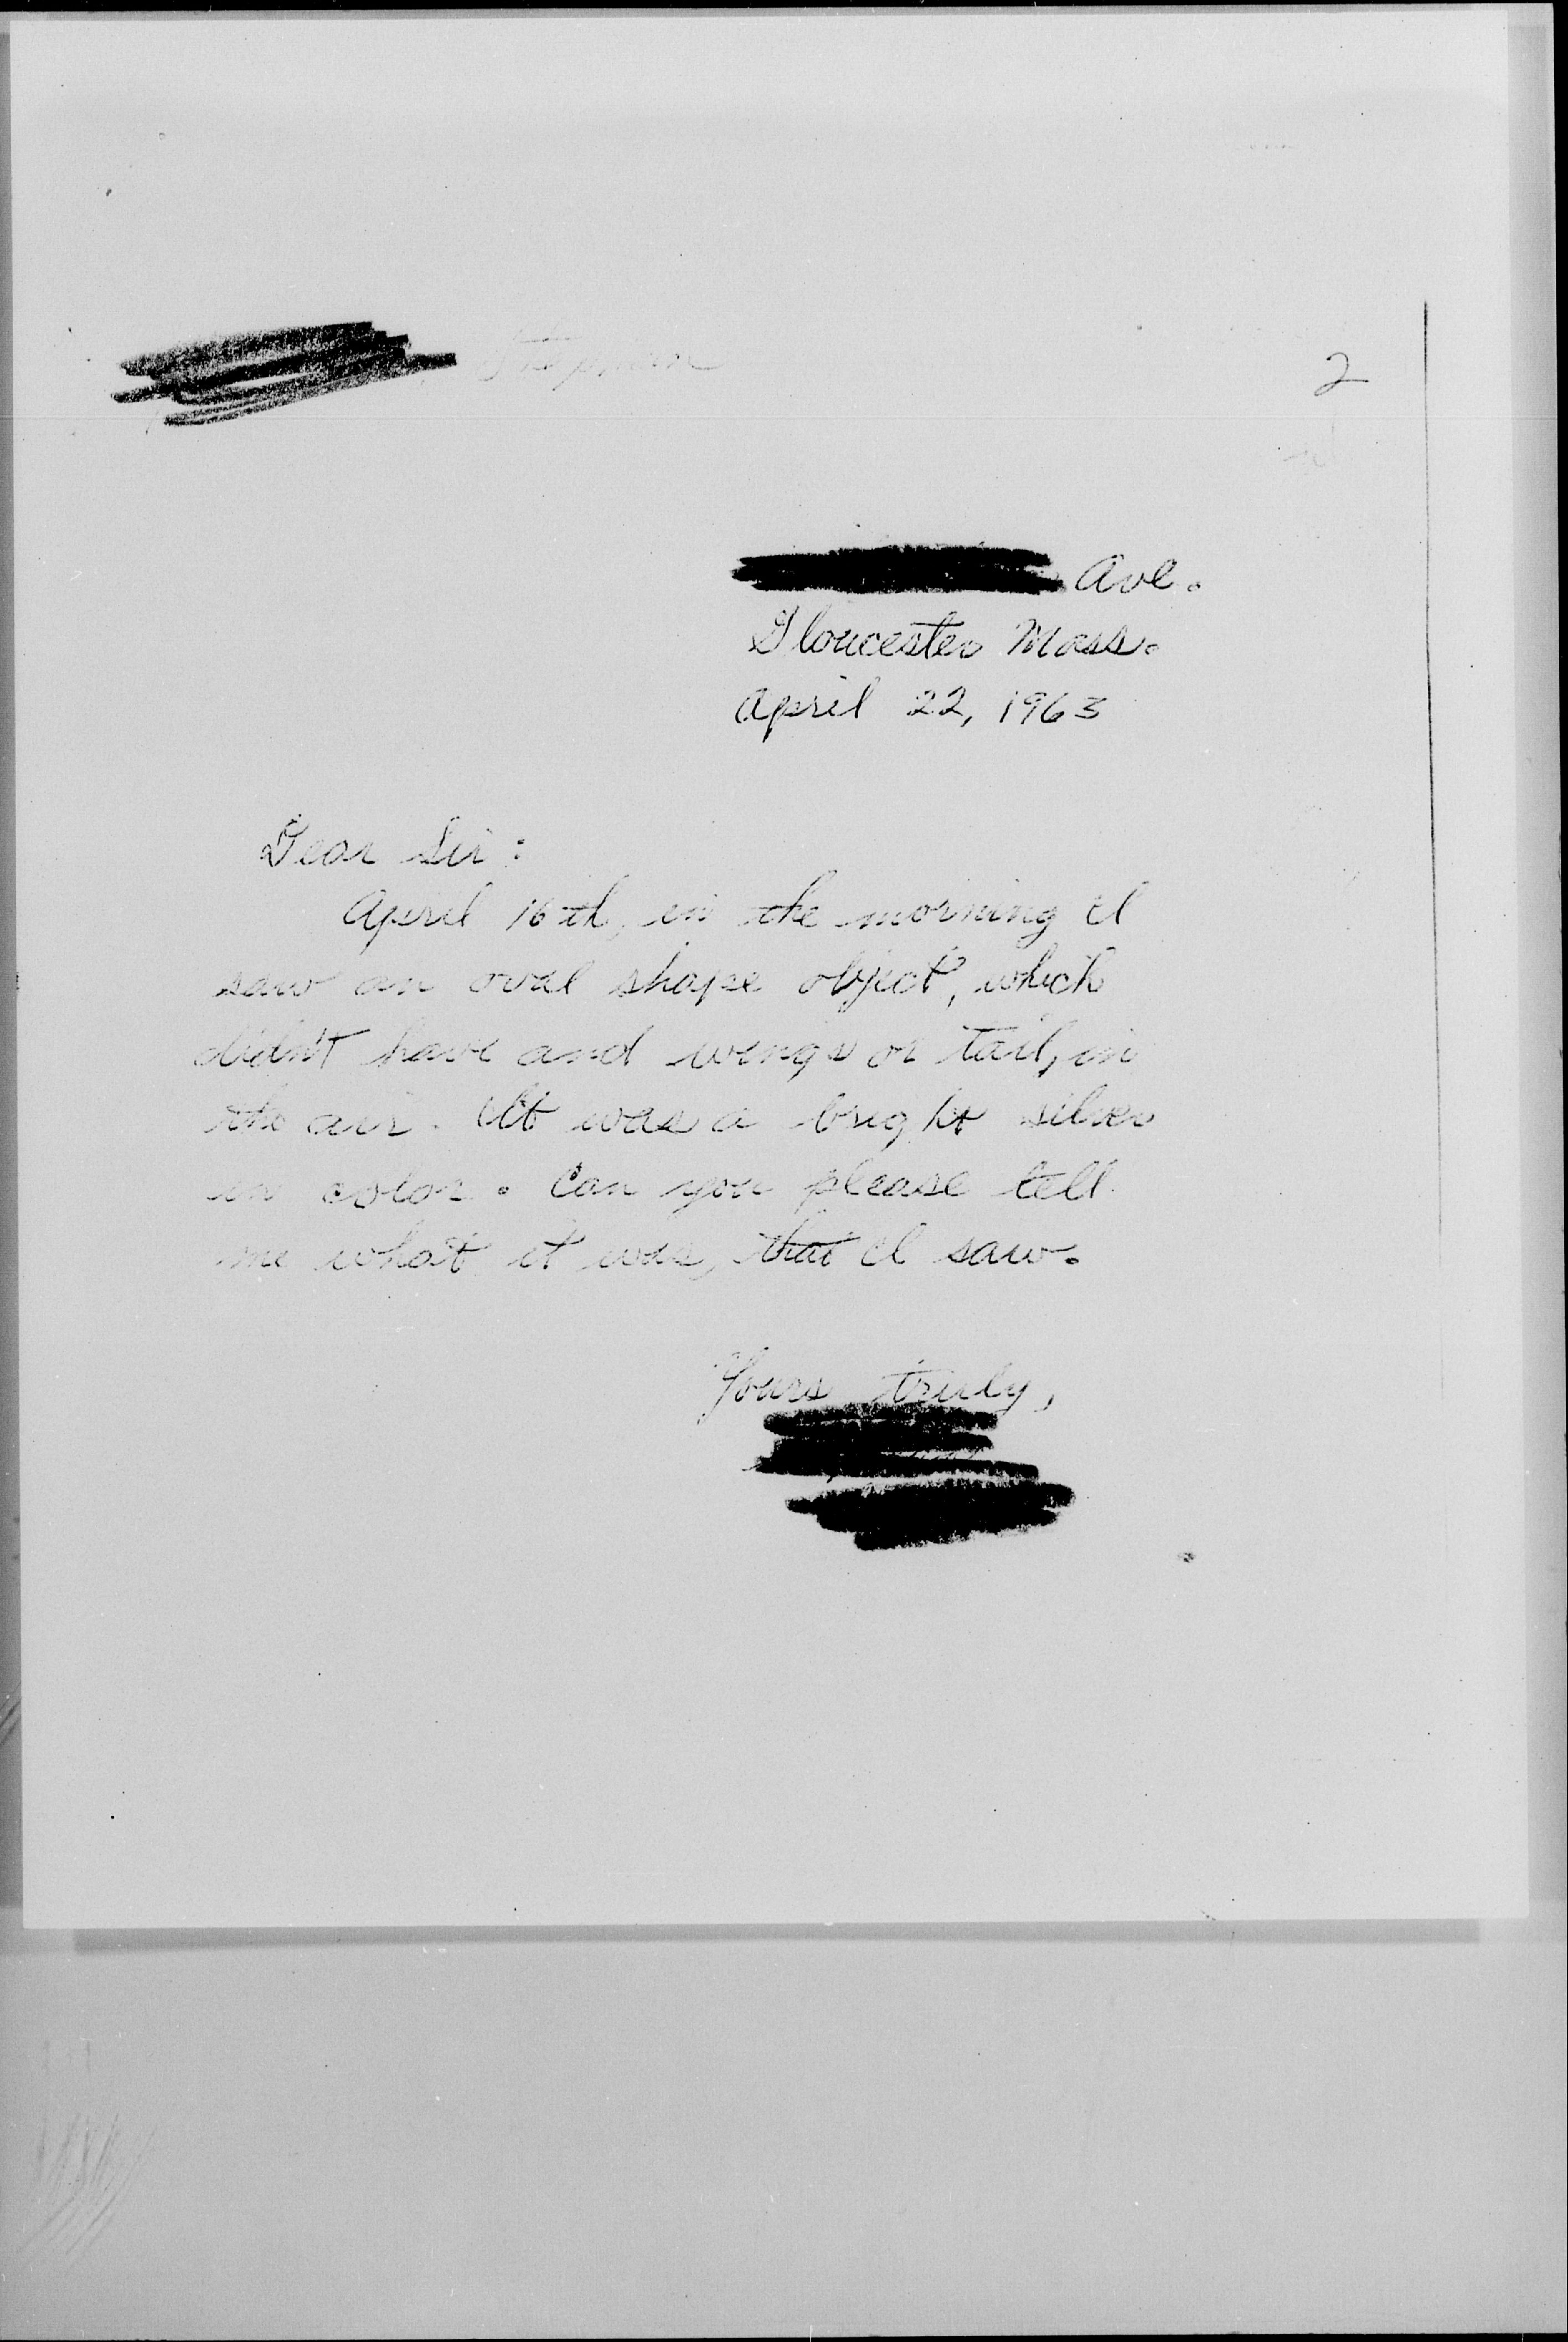 2
Ave.
Gloucester Mass.
April 22, 1963
Dear Sir:
April 16th, in the morning I
saw an oval shape object, which
didn't have and wings or tail, in
the air. It was a bright silver
in color. Can you please tell
me what it was, that I saw.
Yours truly,